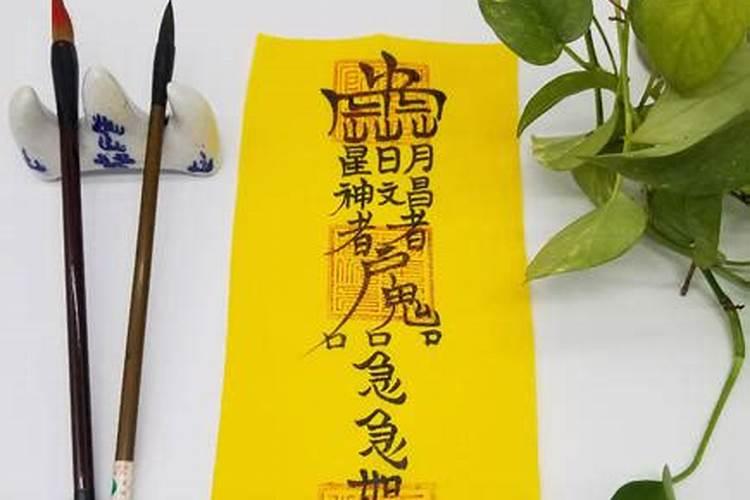 星日月
神文昌
者者
尸鬼
口口口
急
急
如